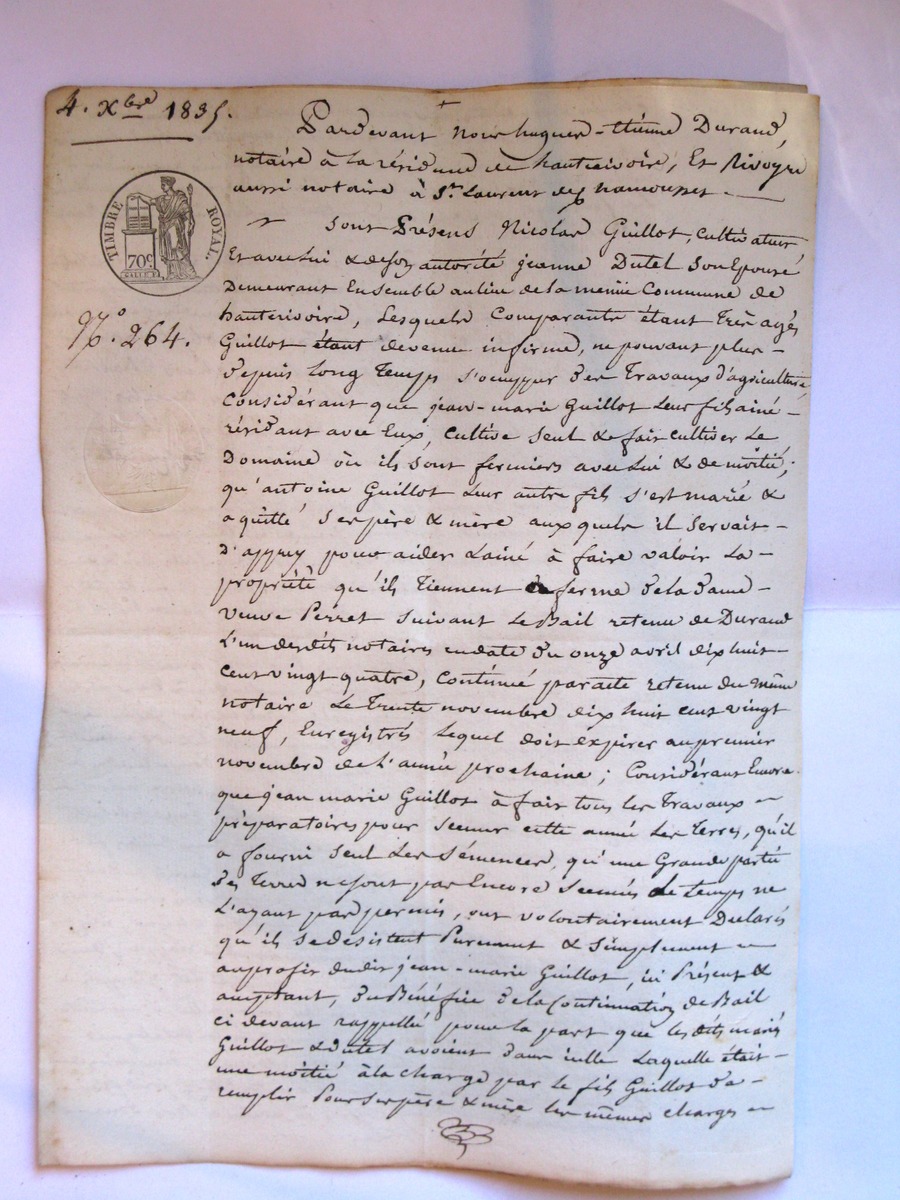 4. Xbre 1835.
Pardevant Nous hugues-étienne Durand,
notaire à la résidence de hauterivoire, Et Rivoyre
aussi notaire à St. Laurent de chamousset
TIMBRE ROYAL
70c
N.o 264.
Sont Présens Nicolas Guillot, cultivateur
Et avec Lui & de son autorité jeanne Dutel Son Epouse
Demeurant Ensemble au lieu de la même Commune de
hauterivoire, Lesquels Comparants étant Très agés
Guillot étant devenu infirme, ne pouvant plus
depuis long Temps s'occupper des Travaux d'agriculture
Considérant que jean-marie Guillot Leur fils ainé
résidant avec Eux, cultive seul & fait cultiver Le
Domaine où ils sont fermiers avec Lui & de moitié;
qu'antoine Guillot Leur autre fils s'est marié &
a quitté ses père & mère aux quels il servait
d'appuy pour aider L'ainé à faire valoir La
propriété qu'ils Tiennent à ferme de la dame
veuve Perret suivant Le Bail retenu de Durand
L'un desdits notaires en date du onze avril dix huit
cent vingt quatre, Continué par acte retenu du même
notaire Le Trente novembre dix huit cent vingt
neuf, Enregistrés Lequel doit éxpirer au premier
novembre de L'année prochaine; Considérant Encore
que jean marie Guillot à fait tous les Travaux
préparatoires pour semer cette année Les Terres, qu'il
a fourni seul Les sémences, qu'une Grande partie
des Terres ne sont pas Encore semées Le temps ne
L'ayant pas permis, ont volontairement Déclarés
qu'ils se désistent Purement & Simplement
au profit dudit jean-marie Guillot, ici Présent &
acceptant, du Bénéfice de la Continuation de Bail
ci devant rappellé pour la part que les dits mariés
Guillot & Dutel avoient dans icelle Laquelle était
une moitié à la charge par le fils Guillot de
remplir Pour ses père & mère les mêmes charges